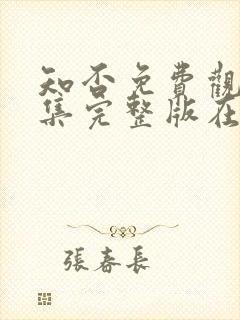 知否免費觀
集完整版在
張春長